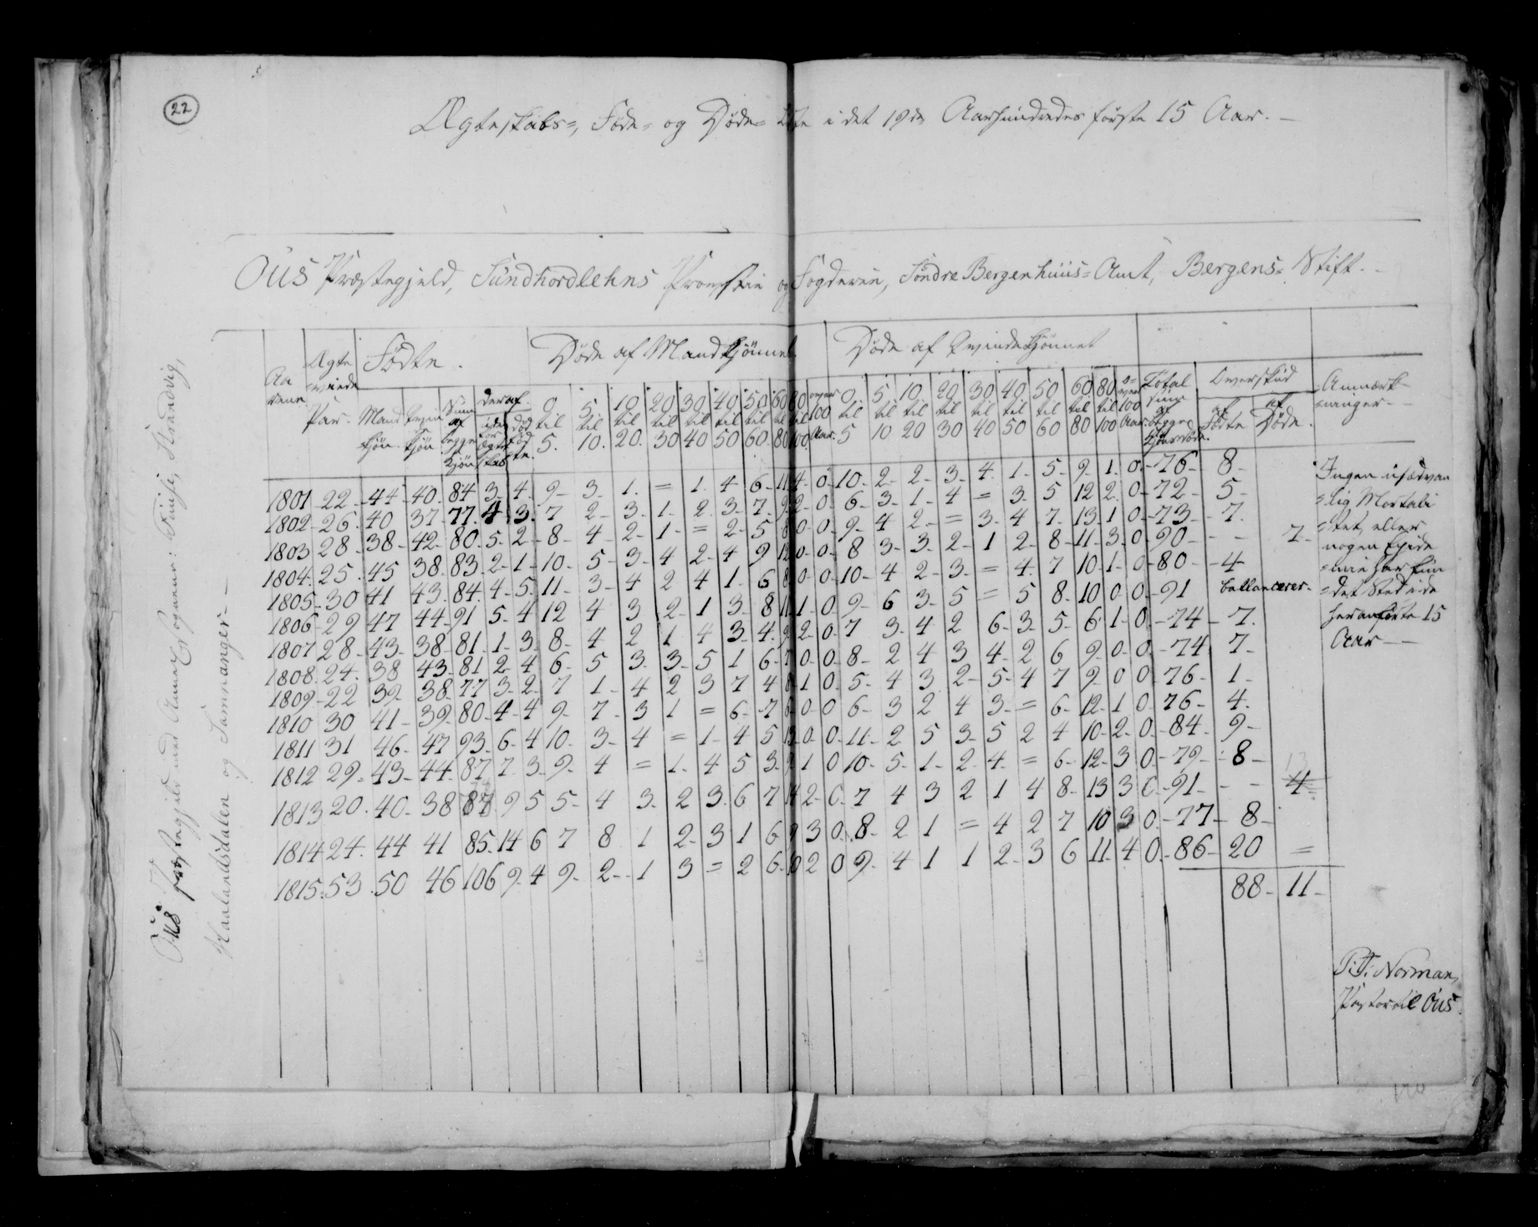 22
Ægteskabs-, Føde- og Døde- Liste i det 19de Aarhundredes første 15 Aar.
Ous Præstegjeld, Sundhordlehns Provstie og Fogderie, Søndre Bergenhuus-Amt, Bergens-Stift.
Aarene Ægte viede Par. Fødte. Døde af Mandkjønnet Døde af Qvindekjønnet Total Sum af begge Overskud Anmærkninger
Mandkjøn Qvindekjøn Sum af begge Kjøn deraf 0 til 5. 5 til 10. 10 til 20. 20 til 30 30 til 40 40 til 50 50 til 60. 60 til 80 80 til 100. over 100 Aar. 0 til 5 5 til 10 10 til 20 20 til 30 30 til 40 40 til 50 50 til 60 60 til 80 80 til 100 over 100 Aar. af Fødte af Døde.
1801 22 44 40 84 3 4 9 3 1 = 1 4 6 11 4 0 10 2 2 3 4 1 5 9 1 0 76 8
1802 26 40 37 77 4 3 7 2 3 1 2 3 7 9 2 0 6 3 1 4 = 3 5 12 2 0 72 5
1803 28 38 42 80 5 2 8 4 2 1 = 2 5 8 0 0 9 4 2 = 3 4 7 13 1 0 73 7
1804 25 45 38 83 2 1 10 5 3 4 2 4 9 12 0 0 8 3 3 2 1 2 8 11 3 0 90 - 7
1805 30 41 43 84 4 5 11 3 4 2 4 1 6 8 0 0 10 4 2 3 = 4 7 10 1 0 80 4
1806 29 47 44 91 5 4 12 4 3 2 1 3 8 11 1 0 9 6 3 5 = 5 8 10 0 0 91 ballancerer
1807 28 43 38 81 1 3 8 4 2 1 4 3 4 9 2 0 7 3 4 2 6 3 5 6 1 0 74 7
1808 24 38 43 81 2 4 6 5 3 3 5 1 6 7 0 0 8 2 4 3 4 2 6 9 0 0 74 7
1809 22 39 38 77 3 2 7 1 4 2 3 7 4 8 1 0 5 4 3 2 5 4 7 9 0 0 76 1
1810 30 41 39 80 4 4 9 7 3 1 = 6 7 6 0 0 6 3 2 4 3 = 6 12 1 0 76 4
1811 31 46 47 93 6 4 10 3 4 = 1 4 5 13 0 0 11 2 5 3 5 2 4 10 2 0 84 9
1812 29 43 44 87 7 3 9 4 = 1 4 5 3 9 1 0 10 5 1 2 4 = 6 12 3 0 79 8
1813 20 40 38 87 9 5 5 4 3 2 3 6 7 14 2 0 7 4 3 2 1 4 8 13 3 0 91 - 4 13
1814 24 44 41 85 14 6 7 8 1 2 3 1 6 9 3 0 8 2 1 = 4 2 7 10 3 0 77 8
1815 53 50 46 106 9 4 9 2 1 3 = 2 6 10 2 0 9 4 1 1 2 3 6 11 4 0 86 20 =
88 11
Ingen usædvan
lig Mortali
tet, eller
nogen Epide
mie har fun
det Sted i de
heranførte 15
Aar
P: J: Norman,
Pastor til Ous.
Ous Præstegjeld med Annex Sognene: Fuuse, Strandvig,
Haalandsdalen og Samnanger